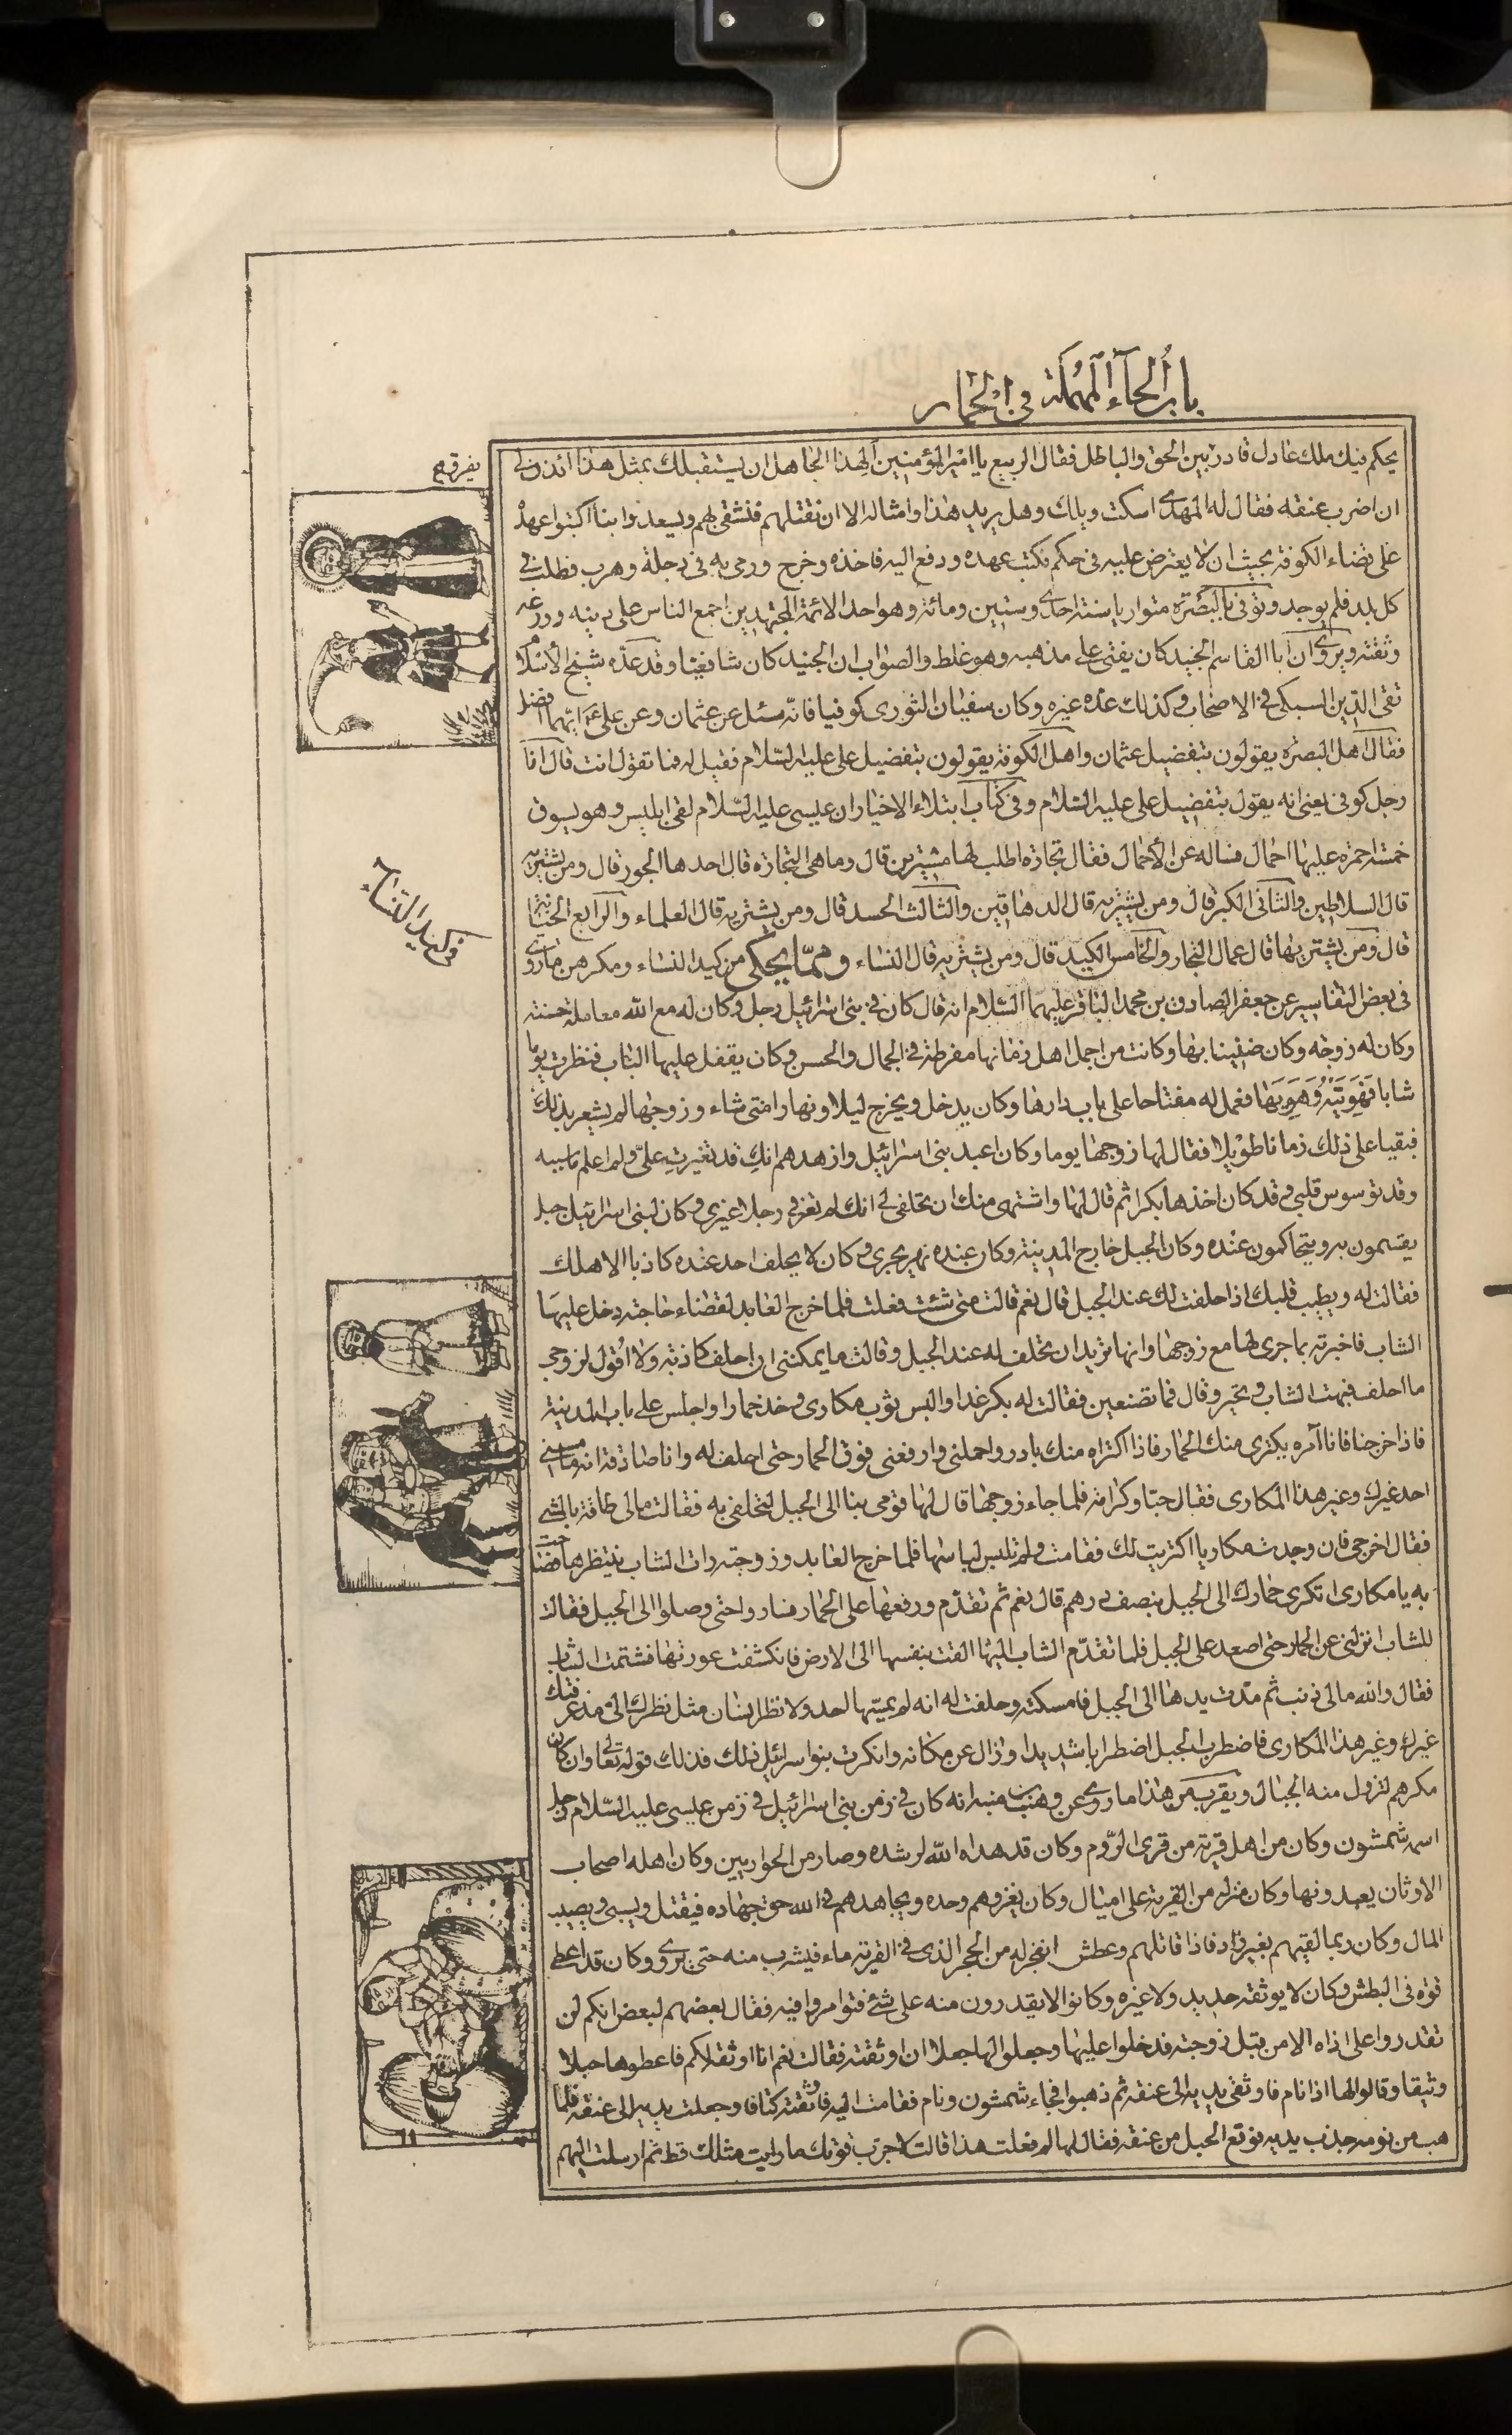 باب الحاء المهملة فی الحمار
يحكم فيك ملك عادل قادر بين الحق والباطل فقال الربيع يا امير المؤمنين الهذا الجاهل ان يستقبلك بمثل هذا ائذن لى
ان اضرب عنقه فقال له المهدى اسكت ويلك وهل يريد هذا وامثاله الا ان نقتلهم فنشقى بهم ويسعدوا بنا اكتبوا عهده
على قضاء الكوفة بحيث ان لا يعترض عليه فى حكم فكتب عهده ودفع اليه فاخذه وخرج ورمى به فى دجلة وهرب فطلب فى
كل بلد فلم يوجد وتوفى بالبصرة متواريا سنة احدى وستين ومائة وهو احد الائمة المجتهدين اجمع الناس على دينه وورعه
وثقته ويروى ان ابا القاسم الجنيد كان يفتى على مذهبه وهو غلط والصواب ان الجنيد كان شافعيا وقد عده شيخ الاسلام
تقى الدين السبكى فى الاصحاب وكذلك عده غيره وكان سفيان الثورى كوفيا فانه سئل عن عثمان وعن على ايهما افضل
فقال اهل البصره يقولون بتفضيل عثمان واهل الكوفة يقولون بتفضيل على عليه السلام فقيل له فما تقول انت قال انا
رجل كوفى يعنى انه يقول بتفضيل على عليه السلام وفى كتاب ابتلاء الاخيار ان عيسى عليه السلام لقى ابليس وهو يسوق
خمسة احمرة عليها احمال فساله عن الاحمال فقال تجارة اطلب لها مشترين قال وما هى التجارة قال احدها الجور قال ومن يشتريه
قال السلاطين والثانى الكبر قال ومن يشتريه قال الدهاقين والثالث الحسد قال ومن يشتريه قال العلماء والرابع الخيانة
قال ومن يشتريها قال عمال التجار والخامس الكيد قال ومن يشتريه قال النساء ومما يحكى من كيد النساء ومكرهن ما روى
فى بعض التفاسير عن جعفر الصادق بن محمد الباقر عليهما السلام انه قال كان فى بنى اسرائيل رجل وكان له مع الله معاملة حسنة
وكان له زوجة وكان ضنينا بها وكانت من اجمل اهل زمانها مفرطة فى الجمال والحسن وكان يقفل عليها الباب فنظرت يوما
شابا فهويته وهويها فعمل له مفتاحا على باب دارها وكان يدخل ويخرج ليلا ونهارا متى شاء وزوجها لم يشعر بذلك
فبقيا على ذلك زمانا طويلا فقال لها زوجها يوما وكان اعبد بنى اسرائيل وازهدهم انك قد تغيرت على ولم اعلم ما سببه
وقد توسوس قلبى وقد كان اخذها بكرا ثم قال لها واشتهى منك ان تحلفى لى انك لم تعرفى رجلا غيرى وكان لبنى اسرائيل جبل
يقسمون به ويتحاكمون عنده وكان الجبل خارج المدينة وكان عنده نهر يجرى وكان لا يحلف احد عنده كاذبا الا هلك
فقالت له ويطيب قلبك اذا حلفت لك عند الجبل قال نعم قالت متى شئت فعلت فلما خرج العابد لقضاء حاجته دخل عليها
الشاب فاخبرته بما جرى لها مع زوجها وانها تريد ان تحلف له عند الجبل وقالت ما يمكننى ان احلف كاذبة ولا اقول لزوجى
ما احلف فبهت الشاب وتحير وقال فما تصنعين فقالت له بكر غدا والبس ثوب مكارى وخذ حمارا واجلس على باب المدينة
فاذا خرجنا فانا آمره يكترى منك الحمار فاذا اكتراه منك بادر واحملنى وارفعنى فوق الحمار حتى احلف له وانا صادقة انه ما مسنى
احد غيرك وغير هذا المكارى فقال حبا وكرامة فلما جاء زوجها قال لها قومى بنا الى الجبل لتحلفى به فقالت ما لى طاقة بالمشى
فقال اخرجى فان وجدت مكاريا اكتريت لك فقامت ولم تلبس لباسها فلما خرج العابد وزوجته رات الشاب ينتظرها فصاحت
به يا مكارى اتكرى حمارك الى الجبل بنصف درهم قال نعم ثم تقدم ورفعها على الحمار فساروا حتى وصلوا الى الجبل فقالت
للشاب انزلنى عن الحمار حتى اصعد على الجبل فلما تقدم الشاب اليها القت بنفسها الى الارض فانكشفت عورتها فشتمت الشاب
فقال والله ما لى ذنب ثم مدت يدها الى الجبل فامسكته وحلفت له انه لم يمسها احد ولا نظر انسان مثل نظرك الى مذ عرفتك
غيرك وغير هذا المكارى فاضطرب الجبل اضطرابا شديدا وزال عن مكانه وانكرت بنو اسرائيل ذلك فذلك قوله تعالى وان كان
مكرهم لتزول منه الجبال ويقرب من هذا ما روى عن وهب بن منبه انه كان فى زمن بنى اسرائيل فى زمن عيسى عليه السلام رجل
اسمه شمشون وكان من اهل قرية من قرى الروم وكان قد هداه الله لرشده وصار من الحواريين وكان اهله اصحاب
الاوثان يعبدونها وكان منزله من القرية على اميال وكان يغزوهم وحده ويجاهدهم فى الله حق جهاده فيقتل ويسبى ويصيب
المال وكان ربما لقيهم بغير زاد فاذا قاتلهم وعطش انفجر له من الحجر الذى فى القرية ماء فيشرب منه حتى يروى وكان قد اعطى
قوة فى البطش وكان لا يوثقه حديد ولا غيره وكانوا لا يقدرون منه على شئ فتوامروا فيه فقال بعضهم لبعض انكم لن
تقدروا على اذاه الا من قبل زوجته فدخلوا عليها وجعلوا لها جعلا ان اوثقته فقالت نعم انا اوثقه لكم فاعطوها حبلا
وثيقا وقالوا لها اذا نام فاوثقى يديه الى عنقه ثم ذهبوا فجاء شمشون ونام فقامت اليه فاوثقته كتافا وجعلت يديه الى عنقه فلما
هب من نومه جذب يديه فوقع الحبل من عنقه فقال لها لم فعلت هذا قالت لاجرب قوتك ما رايت مثلك قط ثم ارسلت اليهم
فى كيد النساء